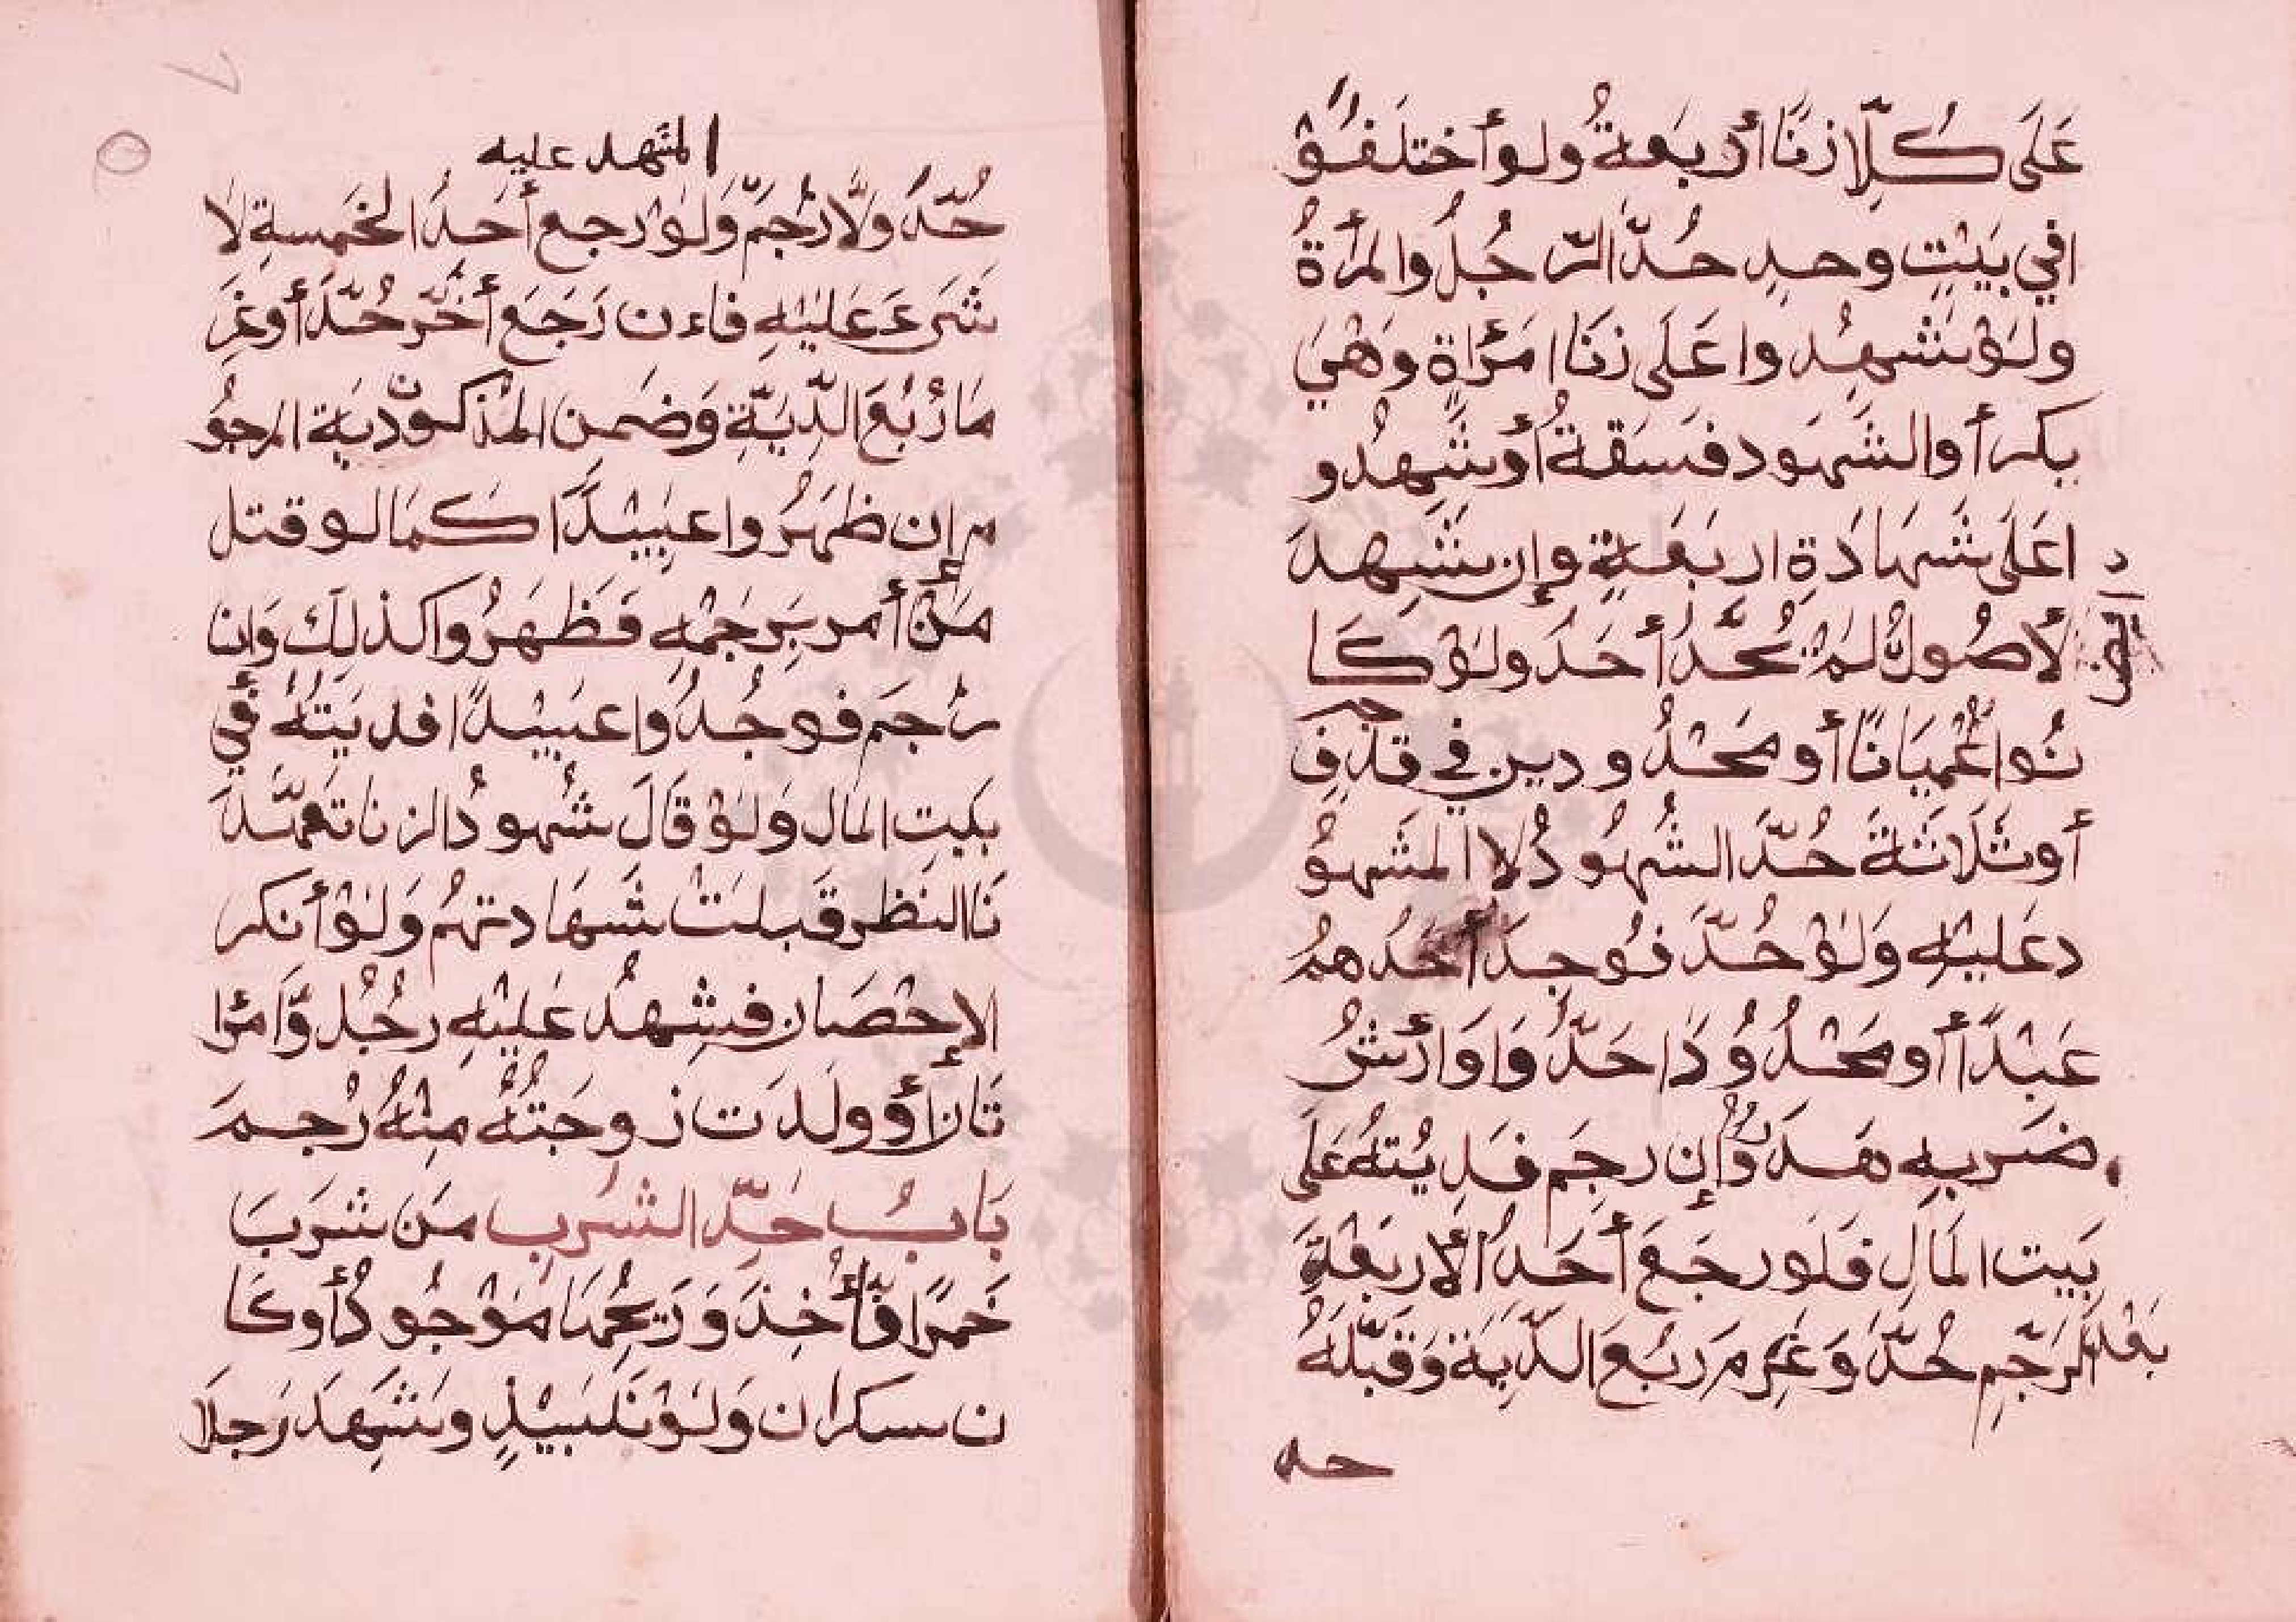 عَلَى كُلّ زنَا أربَعة ولو أختلفو
افي بَيْتٍ وحدٍ حُدّ الرّجُلُ والمرأةُ
ولوْ شهِدوا عَلَى زنَا امرَأة وهْيَ
بكر أوالشهود فسَقةُ أوشَهِدُو
اعَلَى شَهادَةِ اربَعَةٍ وإن شَهِدَ
لأصُولُ لمْ يُحَّدُ أحَدُ ولوْ كَا
نُوا عُمْيَانًا أو مَحْدُودين في قذفَ
أوثلَاثةَ حُدّ الشُهُودُ لا المشهوُ
دعَليْهِ وَلوْ حُدّ فوُجِدَ أحَدُهمُ
عَبْدًا أو محْدُودَا حَدُّوا وَأرْشُ
ضَربهِ هَدَرُ وَإن رجم فدِيُتهُ عَلَى
بَيت المَالِ فلَو رجَعَ أحَدُ الأربَعْةَ
بَعْد الرَجّمِ حُدّ وَغرمَ ربُعَ الدّيَة وَقبْلَهُ
حد
المشهد عليه
حُدّ ولَا رُجمّ وَلوْ رجع أحَدُ الخَمسةِ لا
شَىءَ عَليْهِ فاءن رَجَعَ أخَّرُ حُدَّ أوغرَ
مَا رُبُعَ الدّيّةِ وَضمن المُذكون ديَة المرجوُ
م إن ظهَرُوا عبِيْدًا كمَا لو قتل
مَنْ أمر بِرَجمْهِ فَظهَرُوا كذلِكَ وَان
رُجمَ فوجُدُوا عبَيْدًا فديَتَهُ في
بَيتِ المَال وَلوْ قَالَ شُهودُ الزنا تعمّدَ
نَا النَظر قَبلتْ شَهَادتهمُ وَلوْ أنكر
الإحْصَان فشِهدُ عَليْهِ رجُلُ وَّامرَا
تَانِ أوْ ولدَت زوجَتُهُ مِنْهُ رُجمَ
بَابُ حَدِّ الشُرَبِ مَنَ شَرَبَ
خَمرًا فَأُخِذَ وَرَيحُهَا موْجُودُ أوكَا
ن سكران وَلوْ بنَبيْذٍ وشَهَدَ رَجلَا